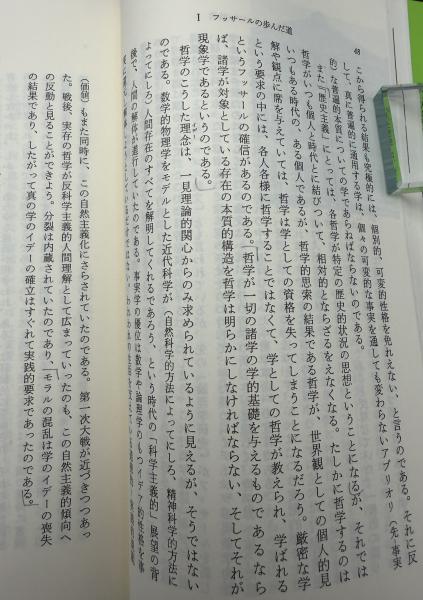 Ⅰ フッサールの歩んだ道
48
こから得られる結果も究極的には、個別的、可変的性格を免れえない、と言うのである。それに反
して、真に普遍的に通用する学は、個々の可変的な事実を通しても変わらないアプリオリ(先事実
的)な普遍的本質についての学であらねばならないのである。
また「歴史主義」にとっては、各哲学が特定の歴史的状況の思想ということになるが、それでは
哲学がいつも個人と時代とに結びついて、相対的とならざるをえなくなる。たしかに哲学するのは
いつもある時代の、ある個人であるが、哲学的思索の結果である哲学が、世界観としての個人的見
解や観点に席を与えていては、哲学は学としての資格を失ってしまうことになるだろう。厳密な学
という要求の中には、各人各様に哲学することではなくて、学としての哲学が教えられ、学ばれる
というフッサールの確信があるのである。「哲学が一切の諸学の学的基礎を与えるものであるなら
ば、諸学が対象としている存在の本質的構造を哲学は明らかにしなければならない、そしてそれが
現象学であるというのである。
哲学のこうした理念は、一見理論的関心からのみ求められているように見えるが、そうではない
のである。数学的物理学をモデルとした近代科学が(自然科学的方法によってにしろ、精神科学的方法に
よってにしろ)人間存在のすべてを解明してくれるであろう、という時代の「科学主義的」展望の背
後で、人間の解体が進行していたのである。事実学の優位は数学や論理学のもつイデア的性格を事
(価値)もまた同時に、この自然主義化にさらされていたのである。第一次大戦が近づきつつあっ
た。戦後、実存の哲学が反科学主義的人間理解として広まっていったのも、この自然主義的傾向へ
の反動と見ることができよう。分裂は内蔵されていたのであり、「モラルの混乱は学のイデーの喪失
の結果であり、したがって真の学のイデーの確立はすぐれて実践的要求であったのである。」